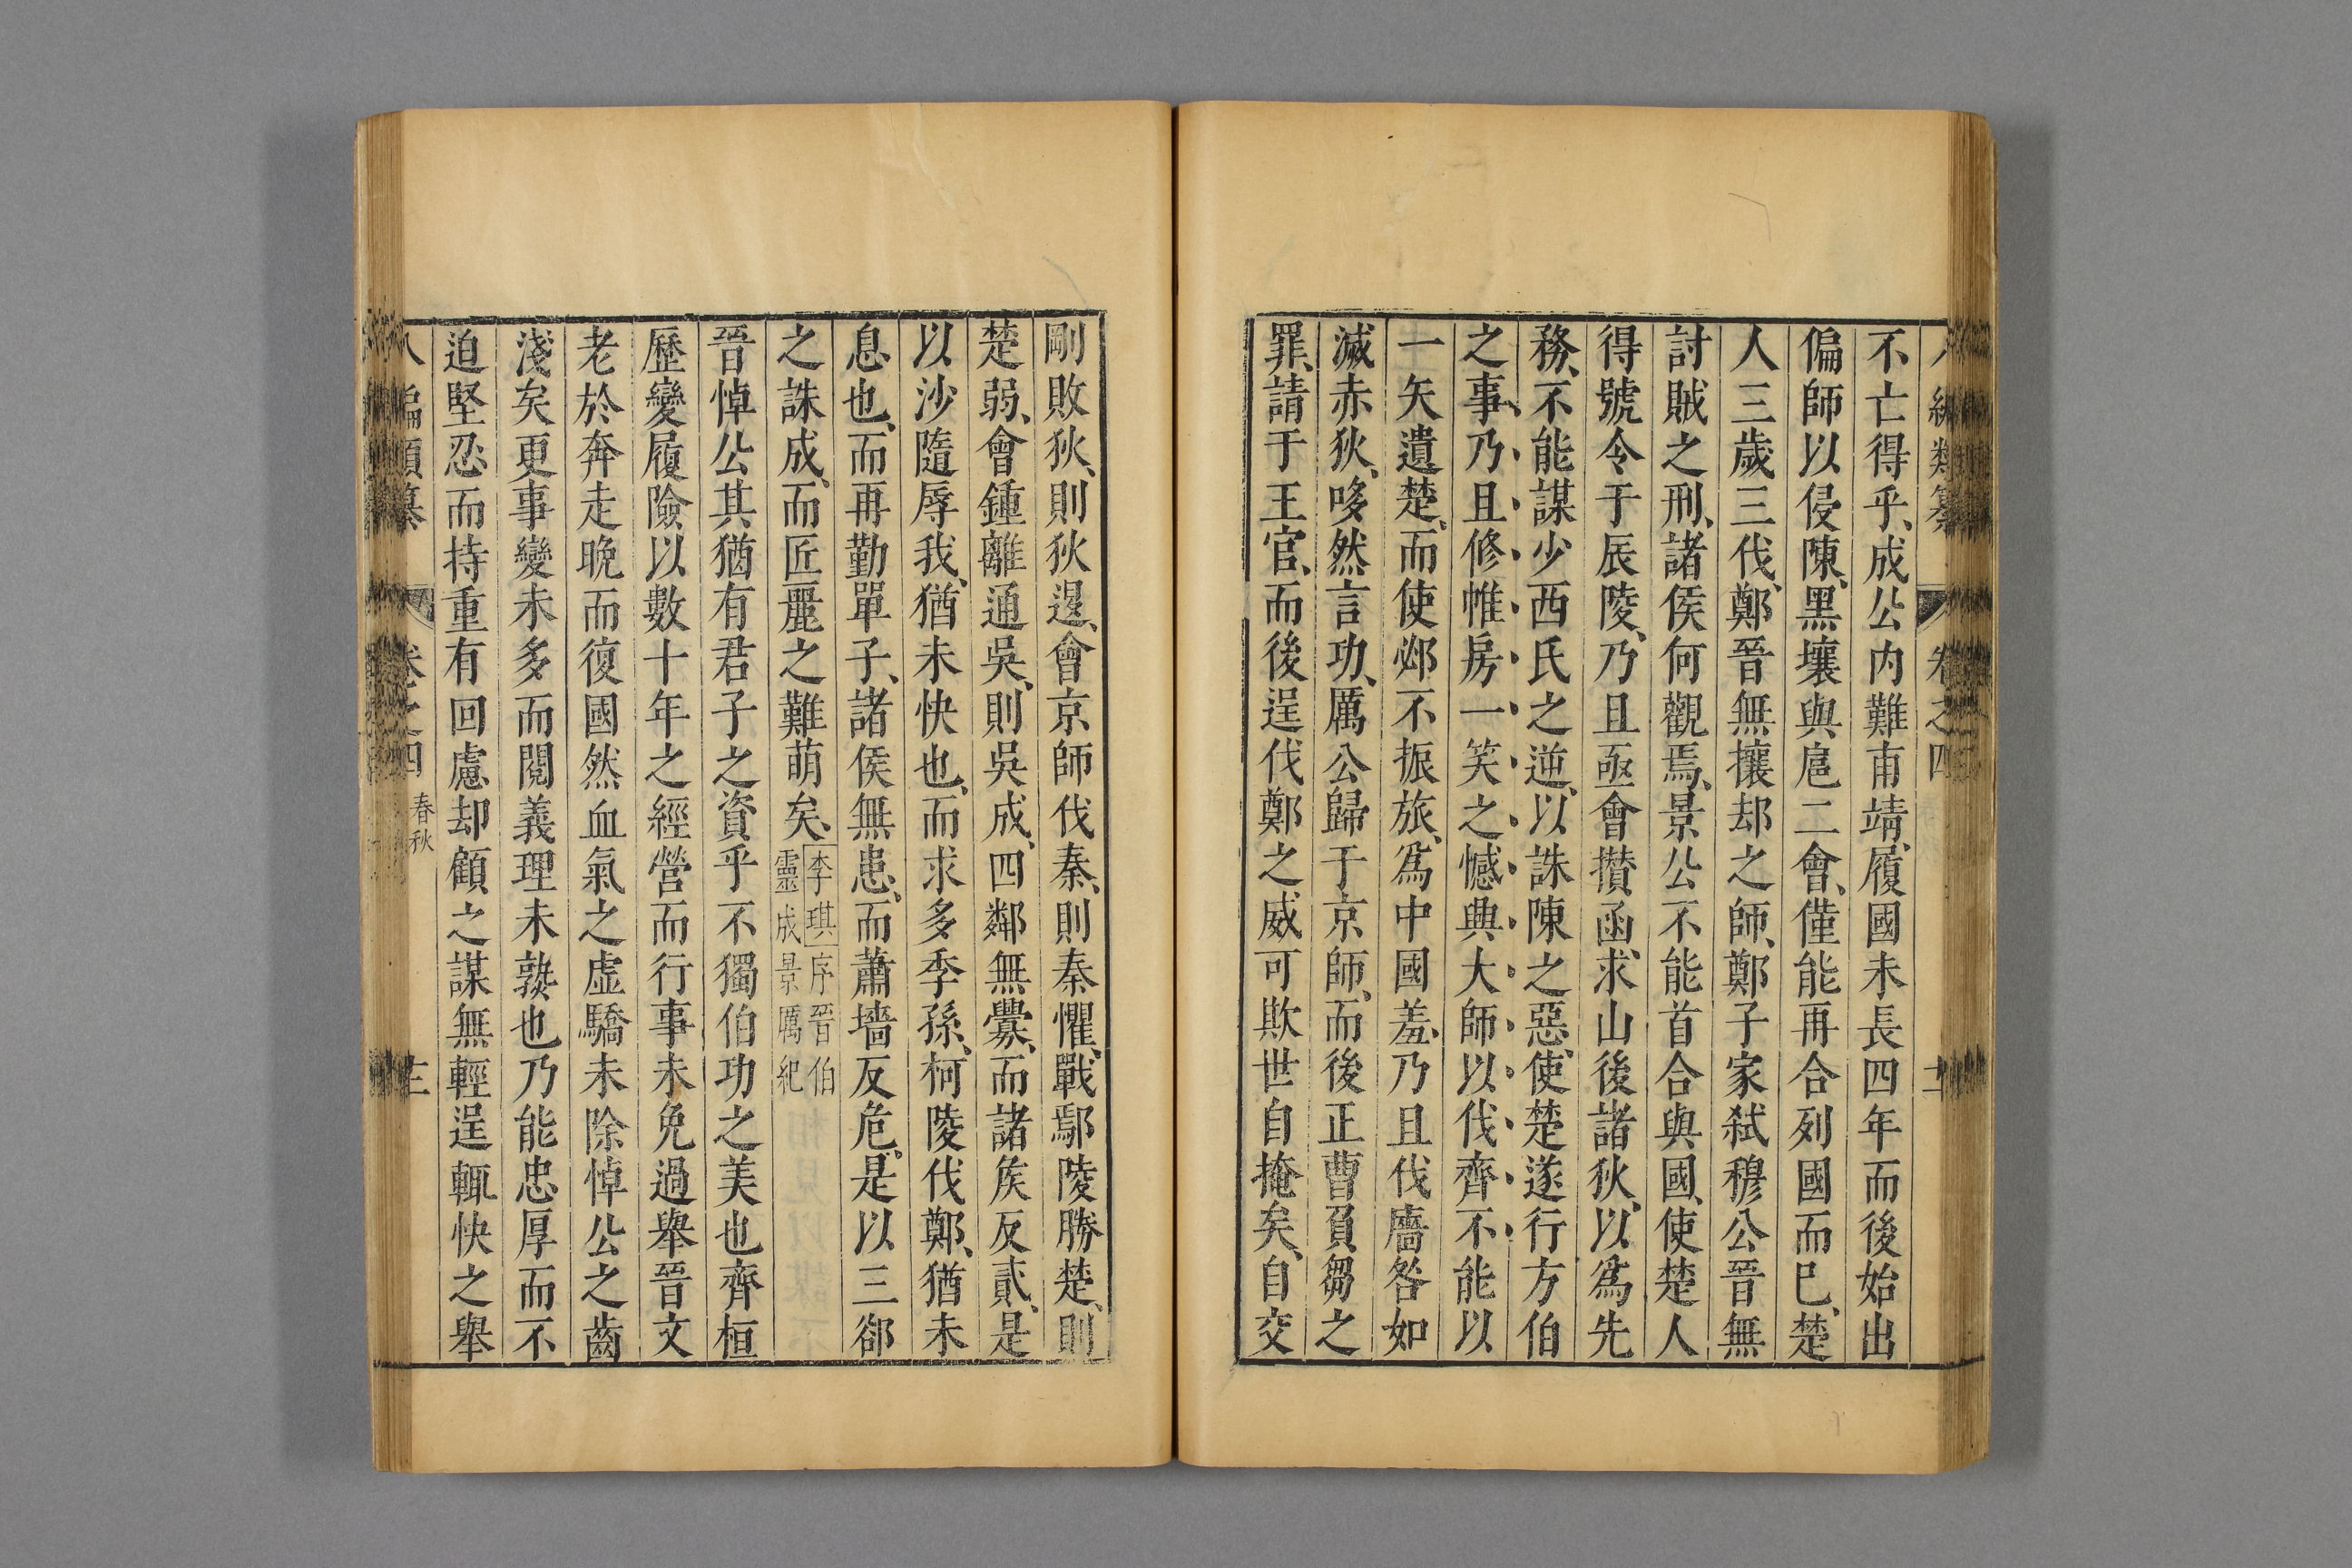 編類纂 卷之四
不亡得乎、成公内難甫靖、履國未長四年而後始出
偏師以侵陳、黑壤與扈二會、僅能再合列國而已、楚
人三歲三伐、鄭晉無攘却之師、鄭子家弒穆公晉無
討賊之刑、諸侯何觀焉、景公不能首合與國、使楚人
得號令于辰陵、乃且亟會攢函、求山後諸狄、以爲先
務、不能謀少西氏之逆、以誅陳之惡、使楚遂行方伯
之事、乃且修帷房一笑之憾興大師以伐齊不能以
一矢遺楚、而使邲不振旅、爲中國羞、乃且伐廧咎如
滅赤狄、哆然言功、厲公歸于京師、而後正曹負芻之
罪、請于王官、而後逞伐鄭之威可欺世自掩矣、自交
剛敗狄、則狄退、會京師伐秦、則秦懼、戰鄢陵勝楚、則
楚弱、會鍾離通吳、則吳成、四鄰無釁、而諸侯反貳、是
以沙隨辱我、猶未快也、而求多季孫、柯陵伐鄭、猶未
息也、而再勤單子、諸侯無患、而蕭墻反危、是以三郤
之誅成、而匠麗之難萌矣、李琪序晉伯靈成景厲紀
晉悼公其猶有君子之資乎不獨伯功之美也齊桓
歷變履險以數十年之經營而行事未免過舉晉文
老於奔走晚而復國然血氣之虛驕未除悼公之齒
淺矣更事變未多而閱義理未孰也乃能忠厚而不
迫堅忍而持重有回慮却顧之謀無輕逞輒快之舉
編類纂 卷之四 春秋